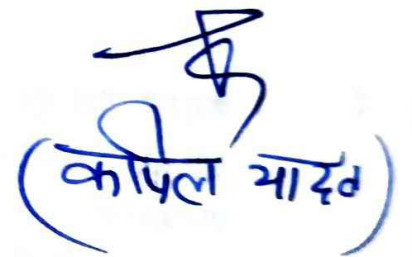 (कपिल यादव)